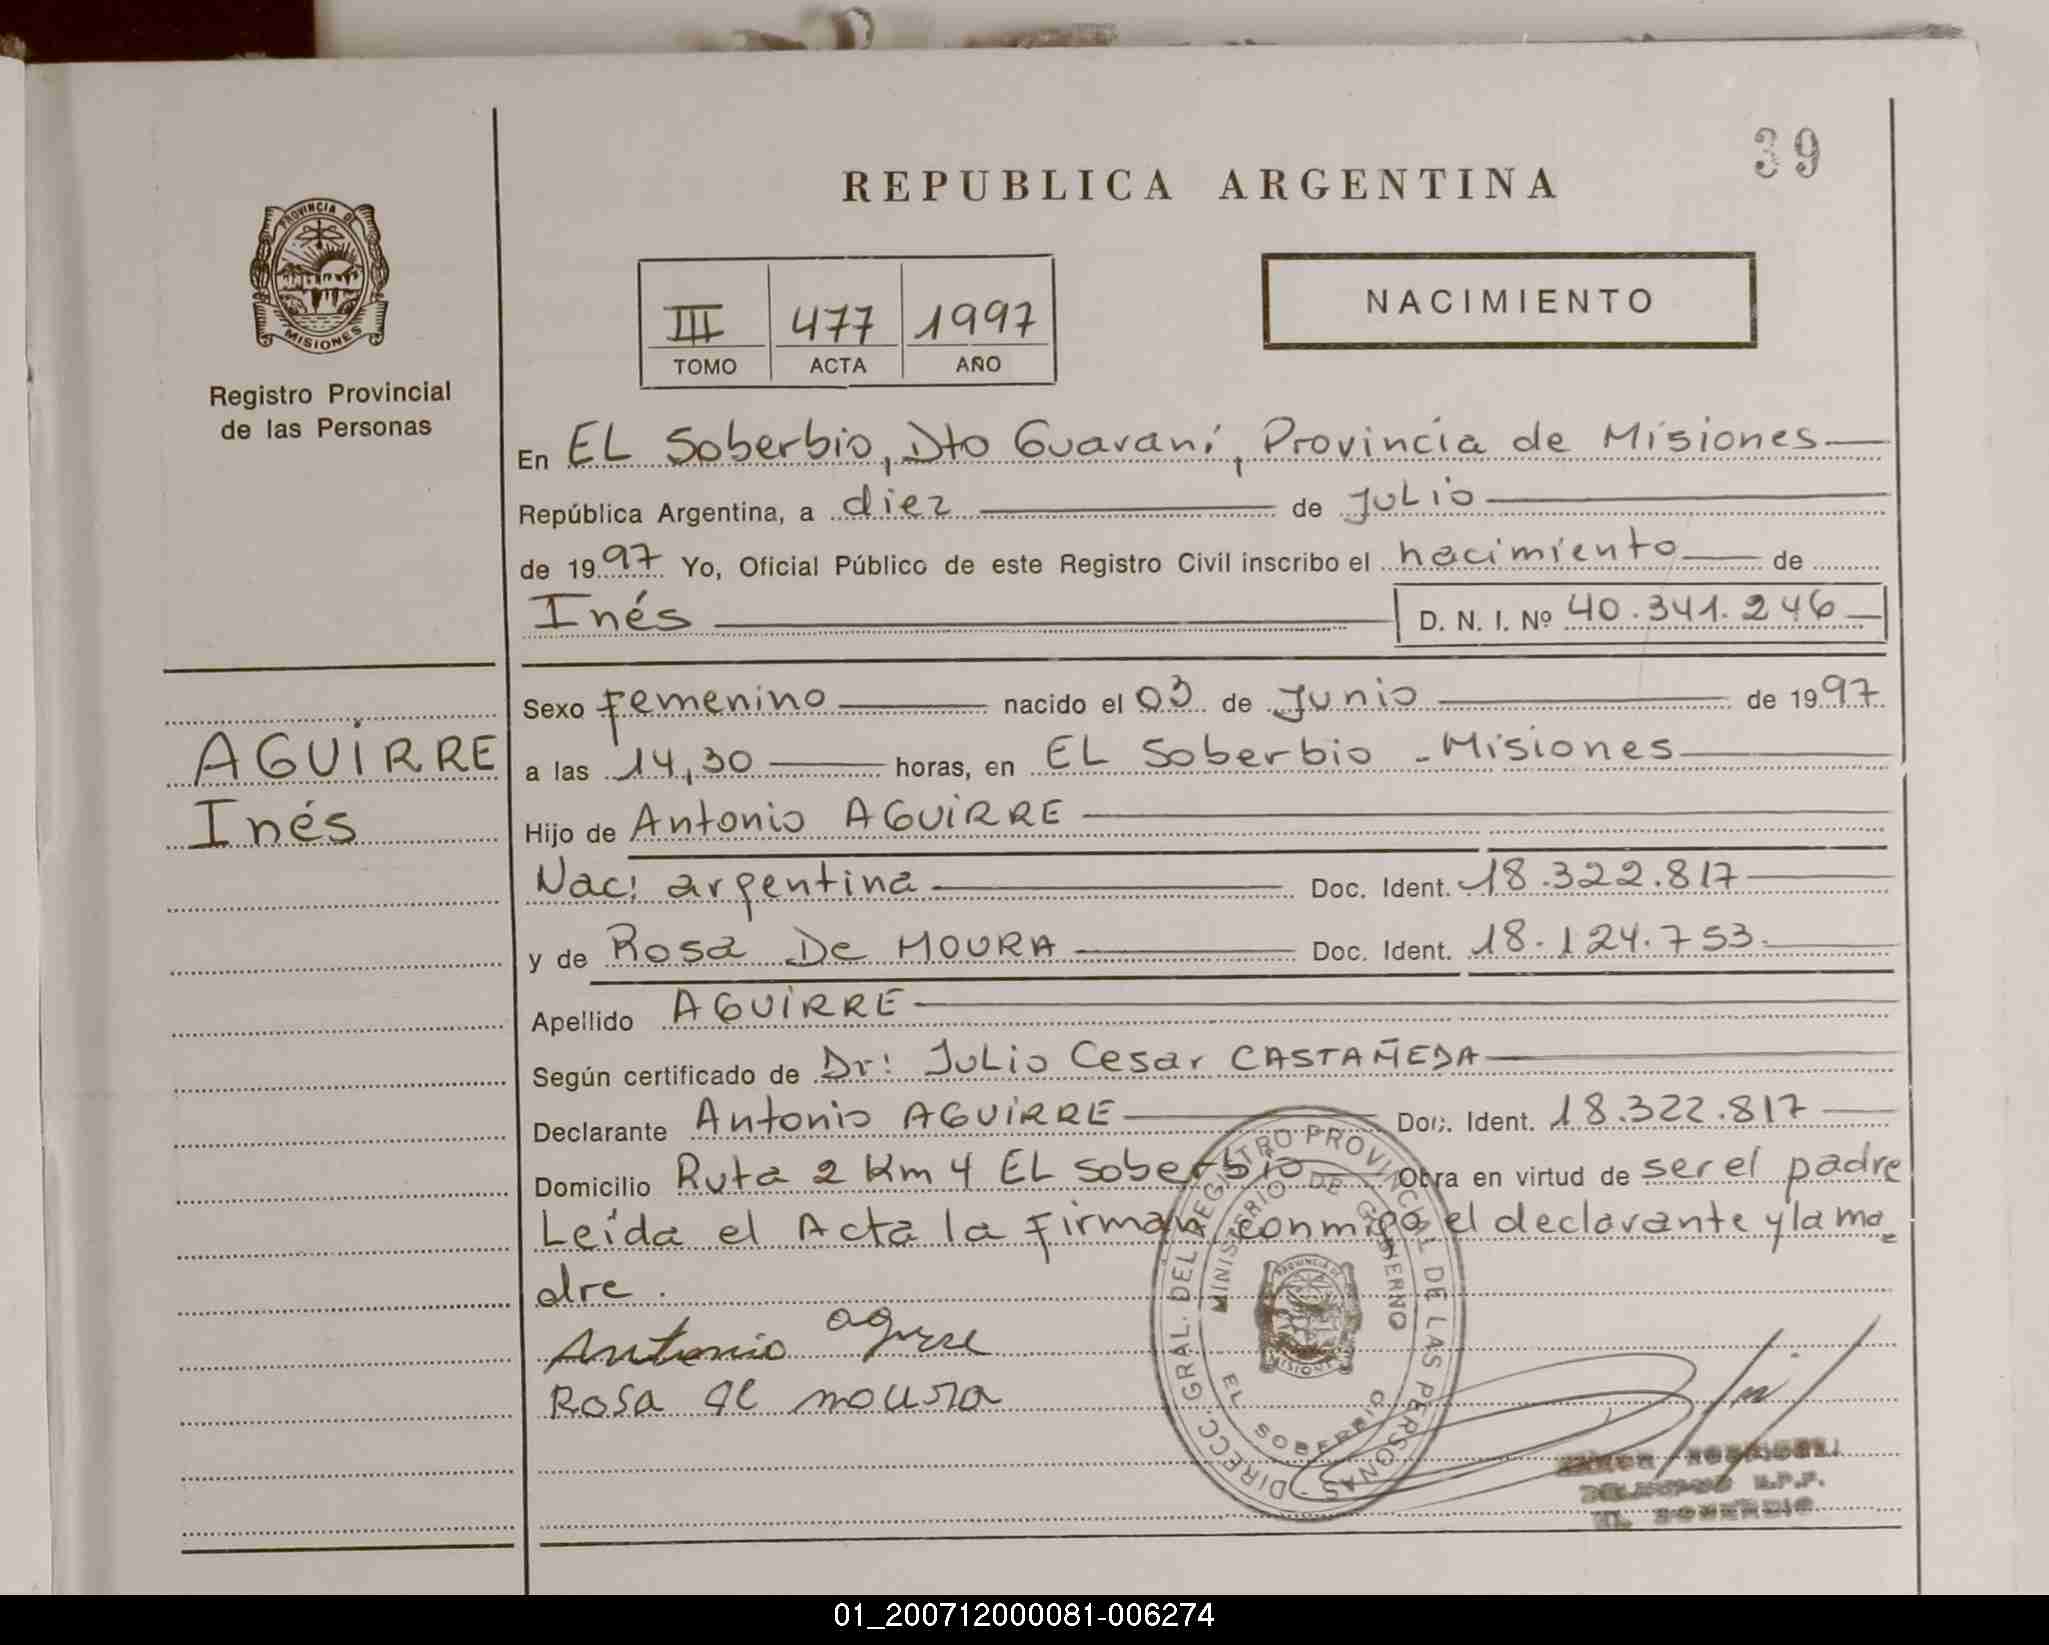 39
REPUBLICA ARGENTINA
PROVINCIA DE
MISIONES
Registro Provincial
de las Personas
III 477 1997
TOMO ACTA AÑO
NACIMIENTO
En EL Soberbio, Dto Guaraní, Provincia de Misiones
República Argentina, a diez de JuLio
de 1997 Yo, Oficial Público de este Registro Civil inscribo el nacimiento de
Inés D. N. I. Nº 40.341.246
Sexo Femenino nacido el 03 de Junio de 1997
AGUIRRE
Inés
a las 14,30 horas, en EL Soberbio - Misiones
Hijo de Antonio AGUIRRE
Nac: argentina Doc. Ident. 18.322.817
y de Rosa De MOURA Doc. Ident. 18.124.753
Apellido AGUIRRE
Según certificado de Dr: JuLio Cesar CASTAÑEDA
Declarante Antonio AGUIRRE Doc. Ident. 18.322.817
Domicilio Ruta 2 Km 4 EL Soberbio Obra en virtud de ser el padre
Leída el Acta la firman conmigo el declarante y la ma
dre.
Antonio
Rosa de moura
DIRECC. GRAL. DEL REGISTRO PROVINCIAL DE LAS PERSONAS
MINISTERIO DE GOBIERNO
PROVINCIA DE
MISIONES
EL SOBERBIO
R.P.P.
EL SOBERBIO
01_200712000081-006274